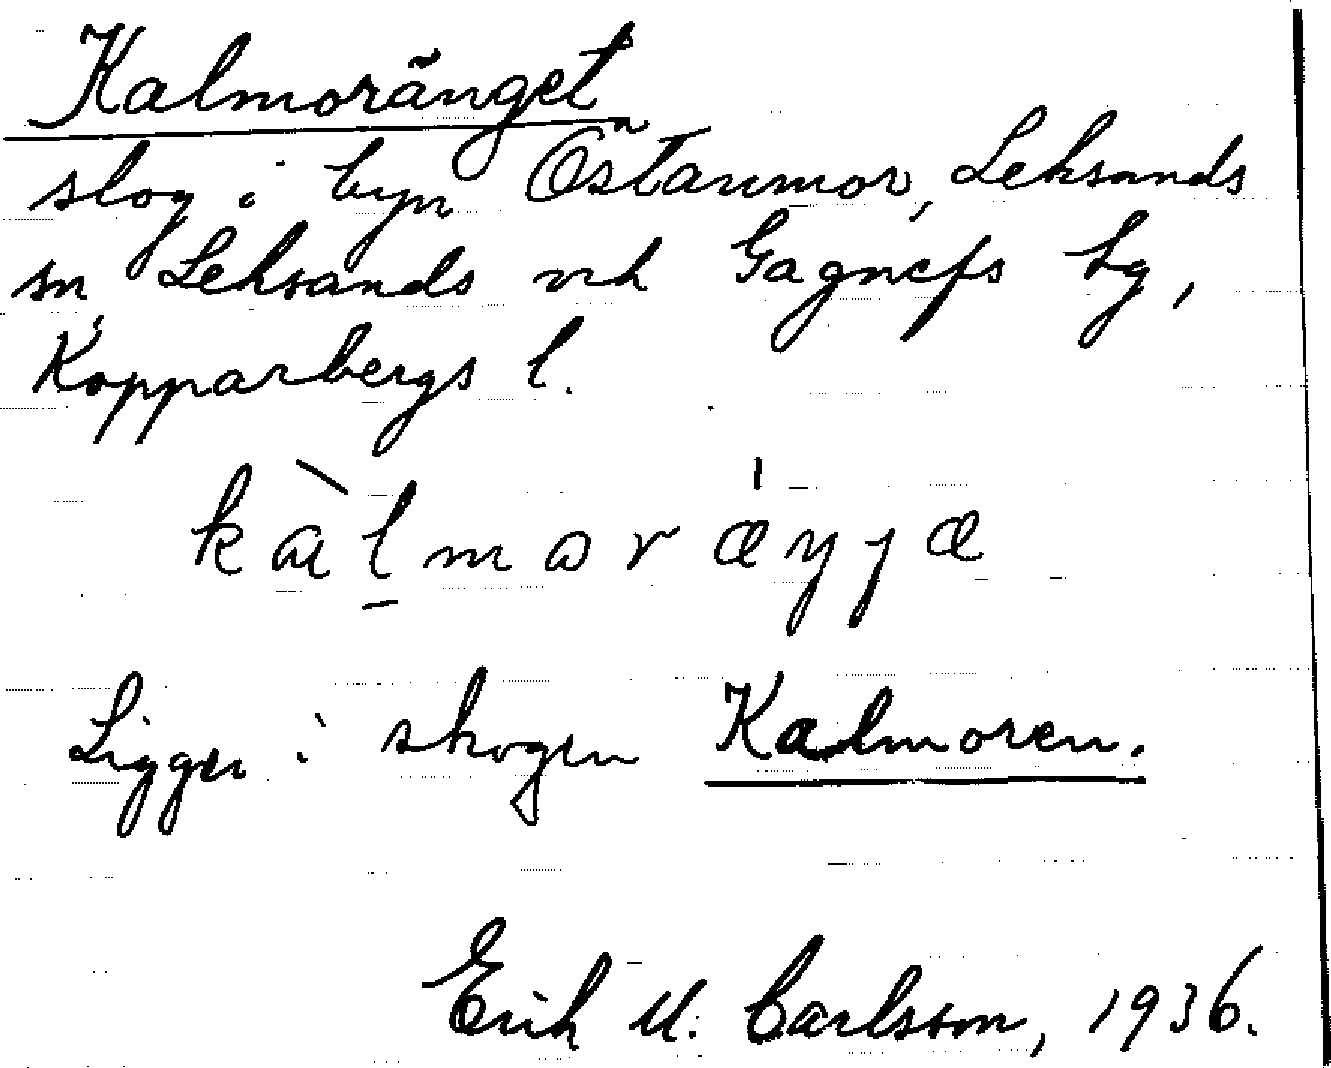 Kalmoränget
slog i byn Östanmor, Leksands
sn, Leksands och Gagnefs tg,
Kopparbergs l.
kàlmoræ̍ŋjæ
Ligger i skogen Kalmoren.
Erik U. Carlsson, 1936.